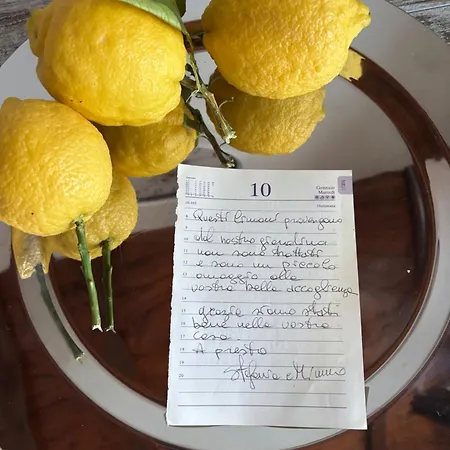 10
Gennaio
Martedì
Questi limoni provengono
dal nostro giardino
non sono trattati
e sono un piccolo
omaggio alla
vostra bella accoglienza
grazie siamo stati
bene nella vostra
casa.
A presto
Stefania e